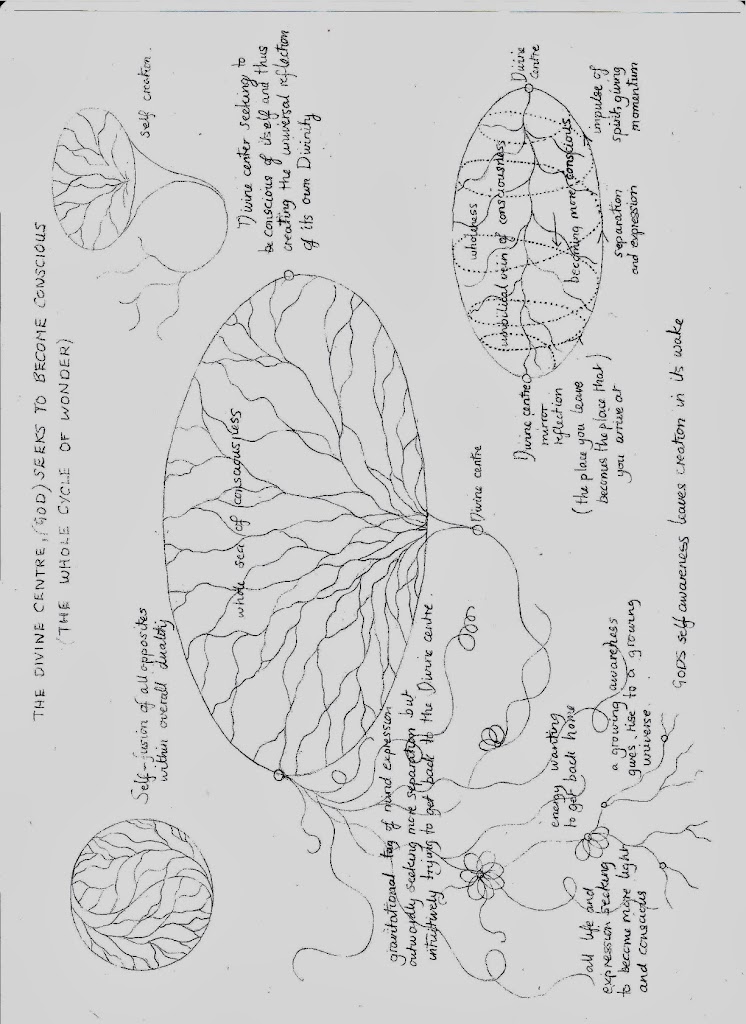 THE DIVINE CENTRE, (GOD) SEEKS TO BECOME CONSCIOUS
(THE WHOLE CYCLE OF WONDER)
Self-fusion of all opposites
within overall duality
self creation.
whole sea of consciousness
Divine center seeking to
be conscious of itself and thus
creating the universal reflection
of its own Divinity
gravitational tag of mind expression
outwardly seeking more separation but
intuitively trying to get back to the Divine centre.
Divine centre
wholeness
umbilical vein of consciousness
becoming more conscious
Divine
centre
Divine centre
mirror
reflection
(the place you leave
becomes the place that)
you arrive at
separation
and expression
impulse of
spirit, giving
momentum
energy wanting
to get back home
all life and
expression seeking
to become more light
and conscious
a growing awareness
gives rise to a growing
universe.
GODS self awareness leaves creation in its wake